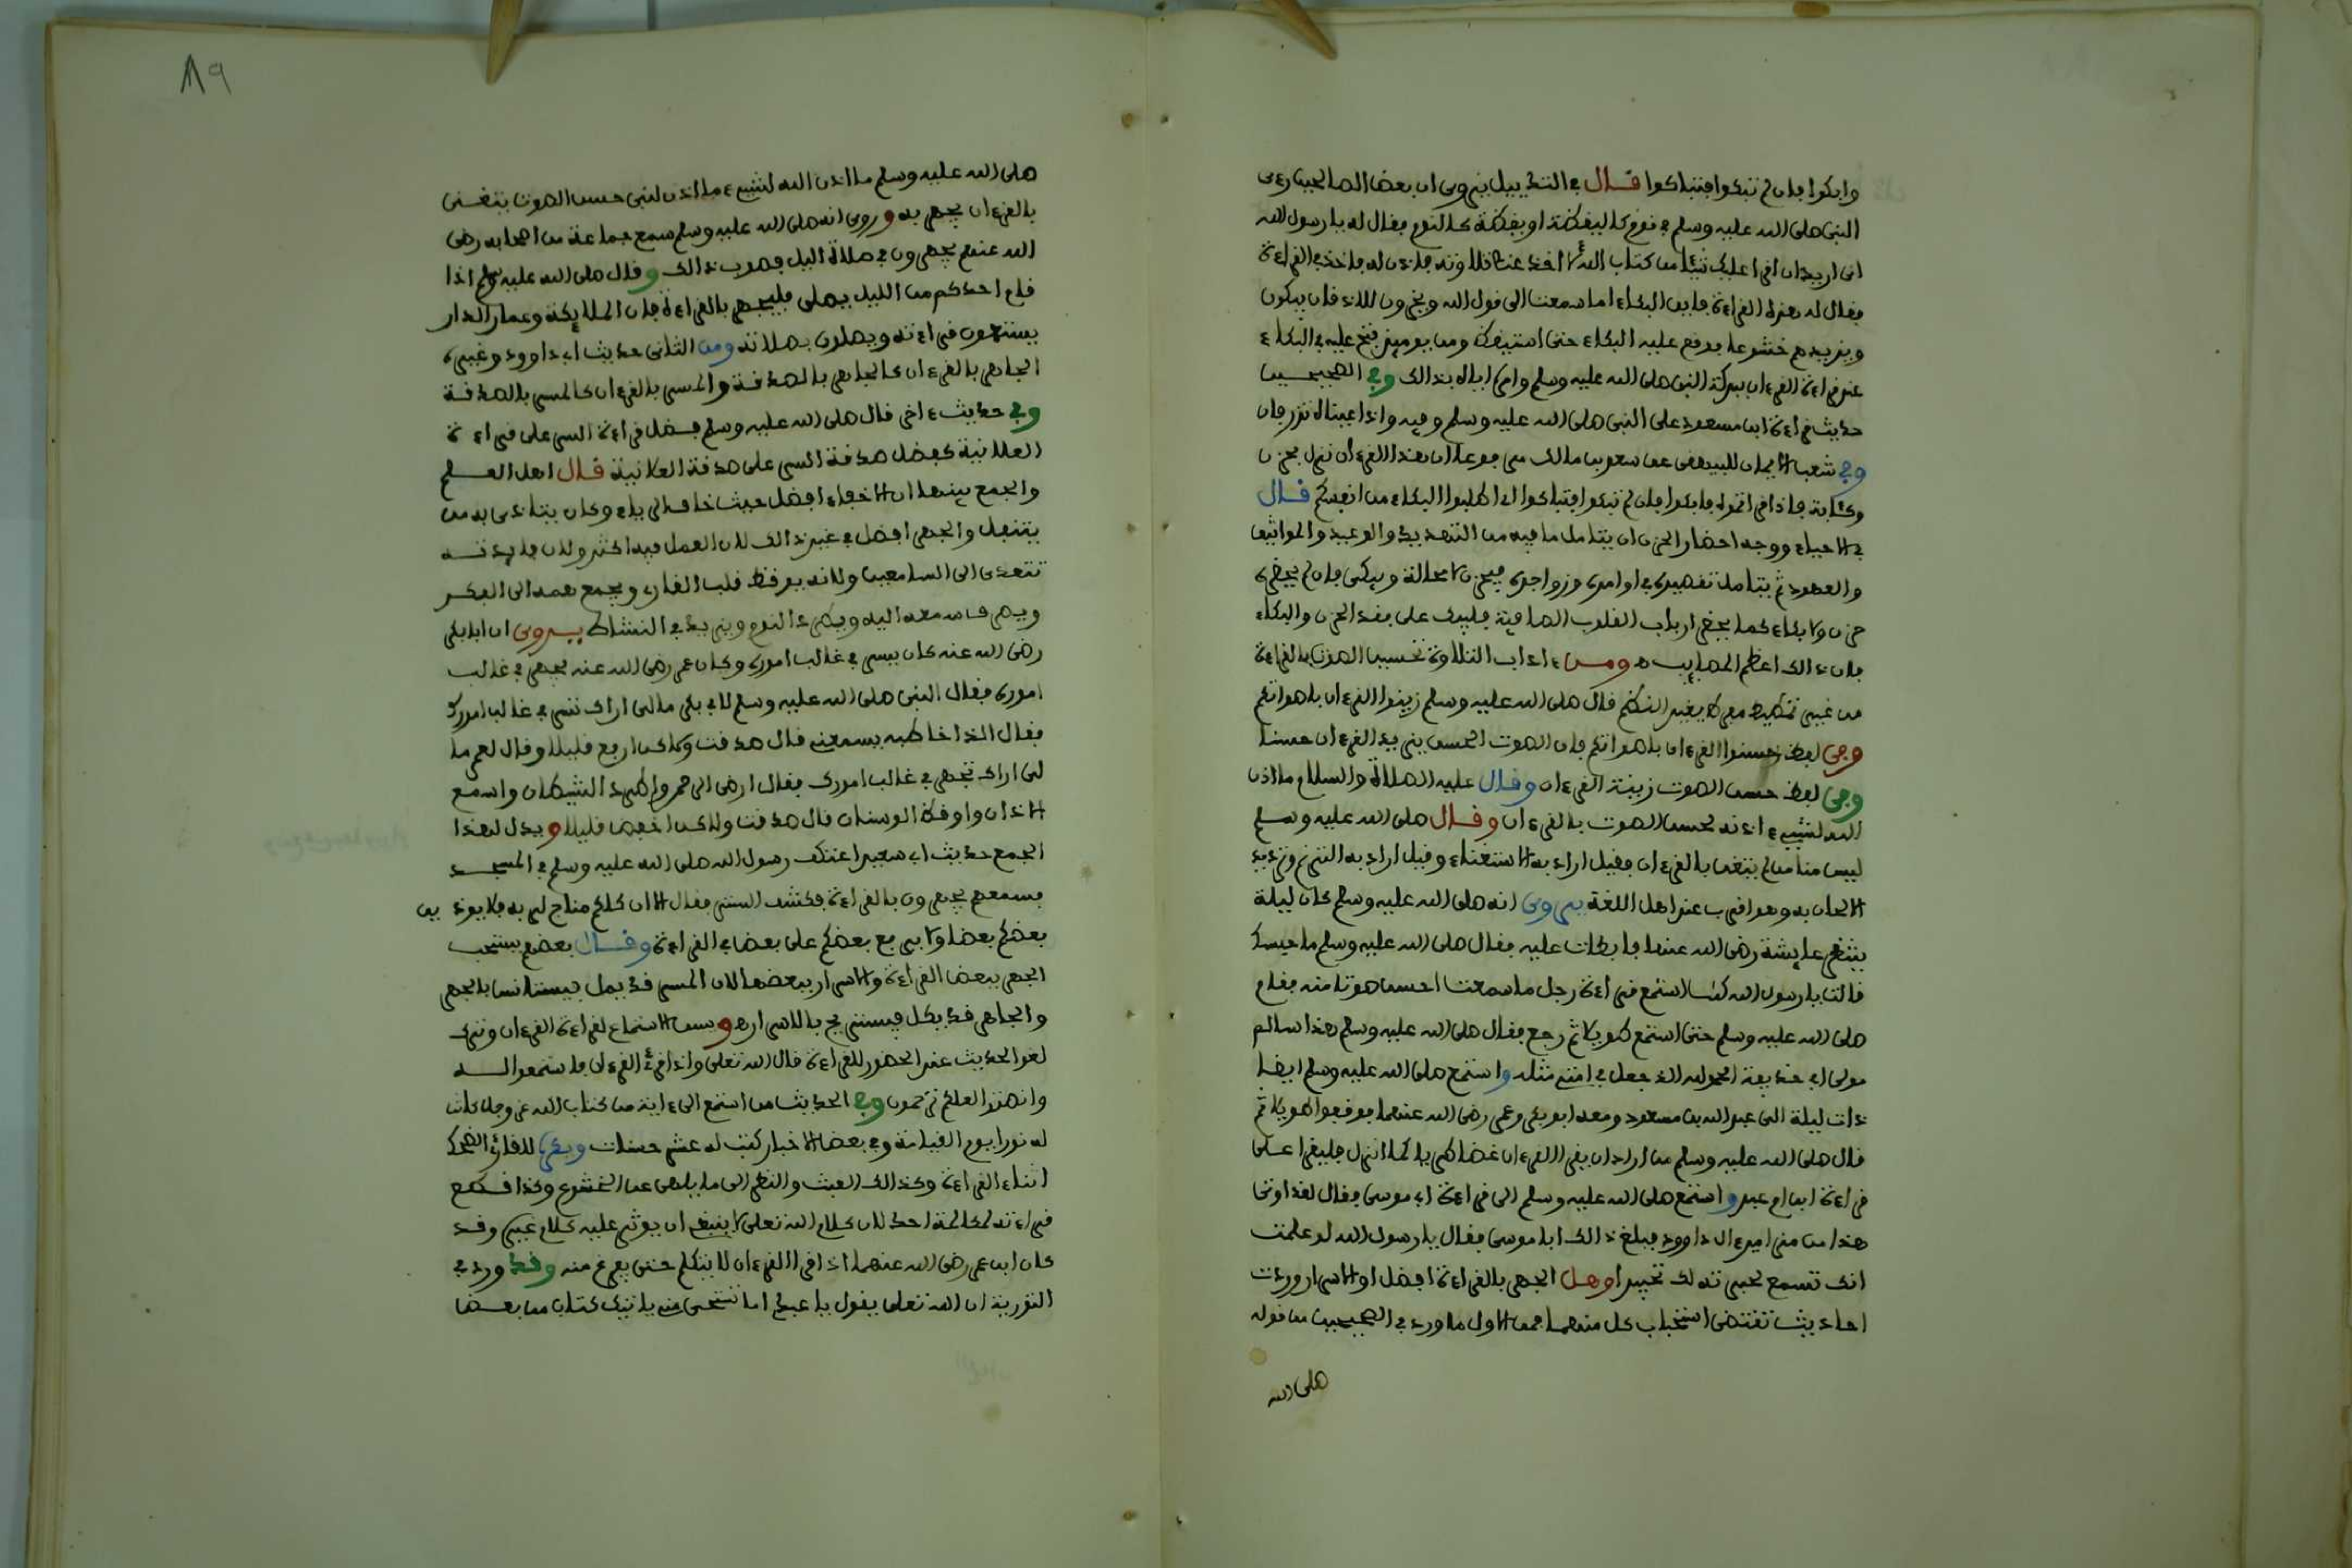 وابكوا فإن لم تبكوا فتباكوا قال في التذييل يروى ان بعض الصالحين رءى
النبي صلى الله عليه وسلم في نوم كاليقظة او يقظة كالنوم فقال له يا رسول الله
اني اريد ان اقرأ عليك شيئا من كتاب الله اخذ عنك تلاوته فاذن له فاخذ في القراءة
فقال له هذه القراءة فاين البكاء اما سمعت الى قول الله ويخرون للاذقان يبكون
ويزيدهم خشوعا فرفع عليه البكاء حتى استيقظ ومن يومئذ فتح عليه في البكاء
عند قراءة القرءان ببركة النبي صلى الله عليه وسلم وامره اياه بذالك وفي الصحيحين
حديث قراءة ابن مسعود على النبي صلى الله عليه وسلم وفيه واذا عيناه تذرفان
وفي شعب الايمان للبيهقي عن سعد بن مالك مرفوعا ان هذا القرءان نزل بحزن
وكآبة فاذا قرأتموه فابكوا فان لم تبكوا فتباكوا اي اطلبوا البكاء من انفسكم قال
في الاحياء ووجه احضار الحزن ان يتامل ما فيه من التهديد والوعيد والمواثيق
والعهود ثم يتامل تقصيره في اوامره وزواجره فيحزن لا محالة ويبكي فان لم يحضره
حزن ولا بكاء كما يحضر ارباب القلوب الصافية فليبك على فقد الحزن والبكاء
فان ذالك اعظم المصايب ومن ءاداب التلاوة تحسين الصوت بالقراءة
من غير تمطيط مفرط يغير النظم قال صلى الله عليه وسلم زينوا القرءان باصواتكم
وفي لفظ حسنوا القرءان باصواتكم فان الصوت الحسن يزيد القرءان حسنا
وفي لفظ حسن الصوت زينة القرءان وقال عليه الصلاة والسلام ما اذن
الله لشيء اذنه لحسن الصوت بالقرءان وقال صلى الله عليه وسلم
ليس منا من لم يتغن بالقرءان فقيل اراد به الاستغناء وقيل اراد به الترنم وترديد
الالحان به وهو اقرب عند اهل اللغة يروى انه صلى الله عليه وسلم كان ليلة
ينتظر عايشة رضي الله عنها فابطات عليه فقال صلى الله عليه وسلم ما حبسك
قالت يا رسول الله كنت استمع قراءة رجل ما سمعت احسن صوتا منه فقام
صلى الله عليه وسلم حتى استمع طويلا ثم رجع فقال صلى الله عليه وسلم هذا سالم
مولى ابي حذيفة الحمد لله الذي جعل في امتي مثله واستمع صلى الله عليه وسلم ايضا
ذات ليلة الى عبد الله بن مسعود ومعه ابو بكر وعمر رضي الله عنهما فوقفوا طويلا ثم
قال صلى الله عليه وسلم من اراد ان يقرأ القرءان غضا طريا كما انزل فليقرأ على
قراءة ابن ام عبد واستمع صلى الله عليه وسلم الى قراءة ابي موسى فقال لقد اوتي
هذا من مزامير ءال داوود فبلغ ذالك ابا موسى فقال يا رسول الله لو علمت
انك تسمع لحبرته لك تحبيرا وهل الجهر بالقراءة افضل او الاسرار وردت
احاديث تقتضي استحباب كل منهما فمن الاول ما ورد في الصحيحين من قوله
صلى الله
٨٩
صلى الله عليه وسلم ما اذن الله لشيء ما اذن لنبي حسن الصوت يتغنى
بالقرءان يجهر به وروي انه صلى الله عليه وسلم سمع جماعة من اصحابه رضي
الله عنهم يجهرون في صلاة الليل فصوب ذالك وقال صلى الله عليه وسلم اذا
قام احدكم من الليل يصلي فليجهر بالقراءة فان الملايكة وعمار الدار
يستمعون قراءته ويصلون بصلاته ومن الثاني حديث ابي داوود وغيره
الجاهر بالقرءان كالجاهر بالصدقة والمسر بالقرءان كالمسر بالصدقة
وفي حديث ءاخر قال صلى الله عليه وسلم فضل قراءة السر على قراءة
العلانية كفضل صدقة السر على صدقة العلانية قال اهل العلم
والجمع بينهما ان الاخفاء افضل حيث خاف الرياء وكان يتاذى به من
يتنفل والجهر افضل في غير ذالك لان العمل فيه اكثر ولان فايدته
تتعدى الى السامعين ولانه يوقظ قلب القارئ ويجمع همه الى الفكر
ويصرف سمعه اليه ويطرد النوم ويزيد في النشاط يروى ان ابا بكر
رضي الله عنه كان يسر في غالب اموره وكان عمر رضي الله عنه يجهر في غالب
اموره فقال النبي صلى الله عليه وسلم لابي بكر مالي اراك تسر في غالب امورك
فقال الذي اخاطبه يسمعني قال صدقت ولاكن ارفع قليلا وقال لعمر ما
لي اراك تجهر في غالب امورك فقال ارضي الرحمن واطرد الشيطان واسمع
الاذان واوقظ الوسنان قال صدقت ولاكن اخفض قليلا ويدل لهذا
الجمع حديث ابي سعيد اعتكف رسول الله صلى الله عليه وسلم في المسجد
فسمعهم يجهرون بالقراءة فكشف الستر فقال الا ان كلكم مناج لربه فلا يوذين
بعضكم بعضا ولا يرفع بعضكم على بعض في القراءة وقال بعضهم يستحب
الجهر ببعض القراءة والاسرار ببعضها لان المسر قد يمل فيستانس بالجهر
والجاهر قد يكل فيستريح بالاسرار وسن الاستماع لقراءة القرءان وترك
لغو الحديث عند الحضور للقراءة قال الله تعلى واذا قرئ القرءان فاستمعوا له
وانصتوا لعلكم ترحمون وفي الحديث من استمع الى ءاية من كتاب الله عز وجل كانت
له نورا يوم القيامة وفي بعض الاخبار كتب له عشر حسنات ويكره للقارئ الضحك
اثناء القراءة وكذالك العبث والنظر الى ما يلهي عن الخشوع وكذا قطع
قراءته لمكالمة احد لان كلام الله تعلى لا ينبغي ان يوثر عليه كلام غيره وقد
كان ابن عمر رضي الله عنهما اذا قرأ القرءان لا يتكلم حتى يفرغ منه وقد ورد في
التورية ان الله تعلى يقول يا عبدي اما تستحي مني ياتيك كتاب من بعض